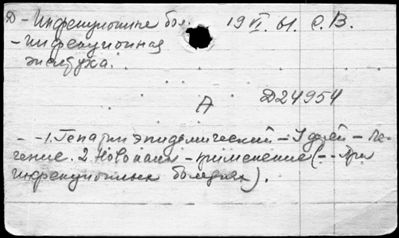 Д - Инфекционные бол. 19 VI 61. С.В.
- инфекционная
желтуха.
А Д24954
- - 1. Гепатит эпидемический - У детей - ле-
чение. 2. - применение (-- При
инфекционных болезнях).